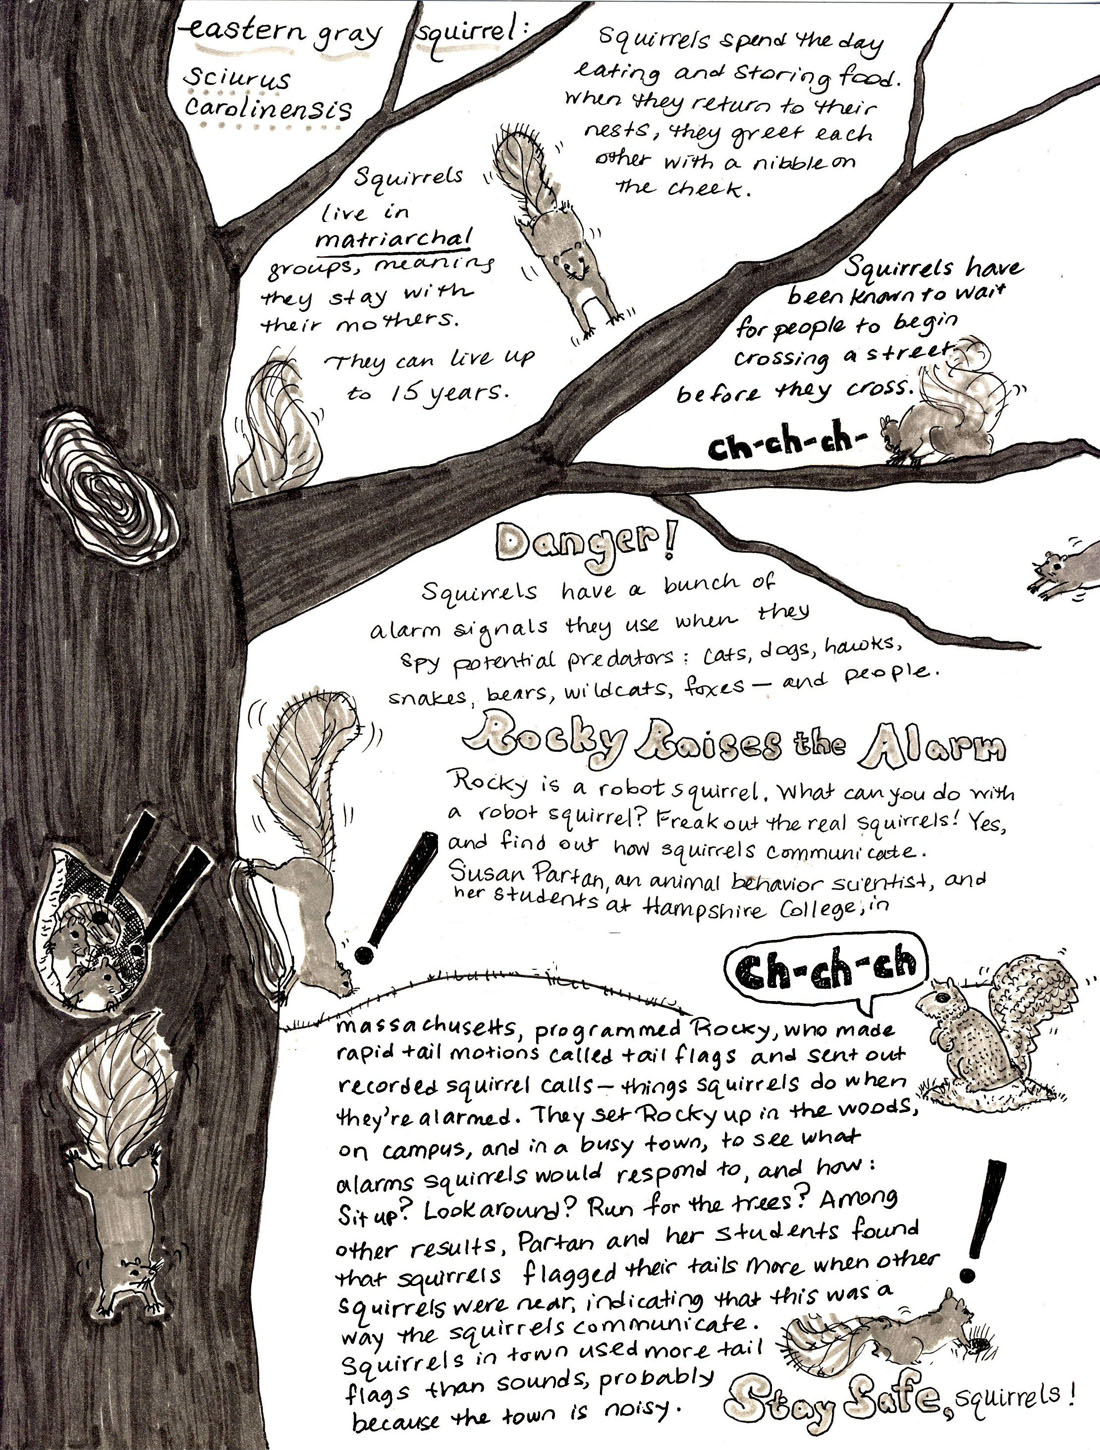 eastern gray squirrel:
Sciurus
Carolinensis
Squirrels spend the day
eating and storing food.
When they return to their
nests, they greet each
other with a nibble on
the cheek.
Squirrels
live in
matriarchal
groups, meaning
they stay with
their mothers.
They can live up
to 15 years.
Squirrels have
been known to wait
for people to begin
crossing a street
before they cross.
ch-ch-ch-
Danger!
Squirrels have a bunch of
alarm signals they use when they
spy potential predators: cats, dogs, hawks,
snakes, bears, wildcats, foxes — and people.
Rocky Raises the Alarm
Rocky is a robot squirrel. What can you do with
a robot squirrel? Freak out the real squirrels! Yes,
and find out how squirrels communicate.
Susan Partan, an animal behavior scientist, and
her students at Hampshire College, in
!
!
!
ch-ch-ch
massachusetts, programmed Rocky, who made
rapid tail motions called tail flags and sent out
recorded squirrel calls — things squirrels do when
they're alarmed. They set Rocky up in the woods,
on campus, and in a busy town, to see what
alarms squirrels would respond to, and how:
Sit up? Look around? Run for the trees? Among
other results, Partan and her students found
that squirrels flagged their tails more when other
squirrels were near, indicating that this was a
way the squirrels communicate.
Squirrels in town used more tail
flags than sounds, probably
because the town is noisy.
!
Stay Safe, squirrels!